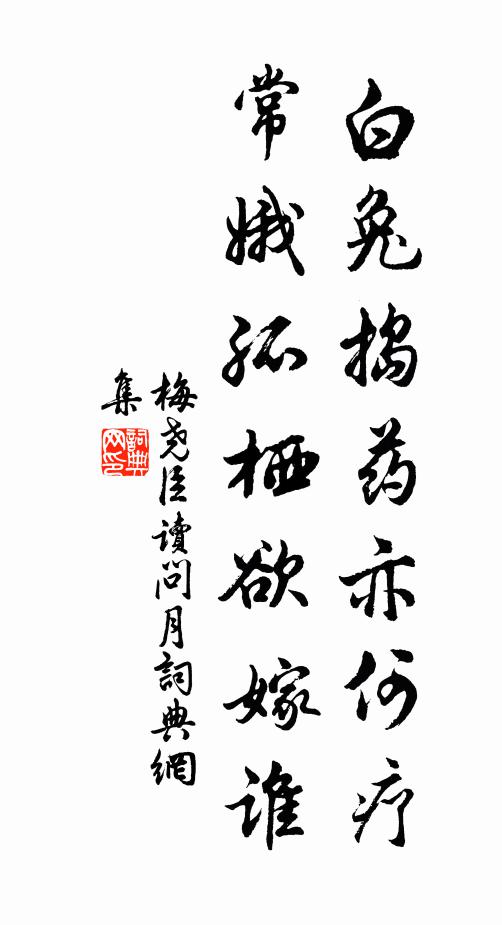 白兔捣药亦何疗
常娥孤栖欲嫁谁
梅尧臣读问月詞典網
集
詞典网印